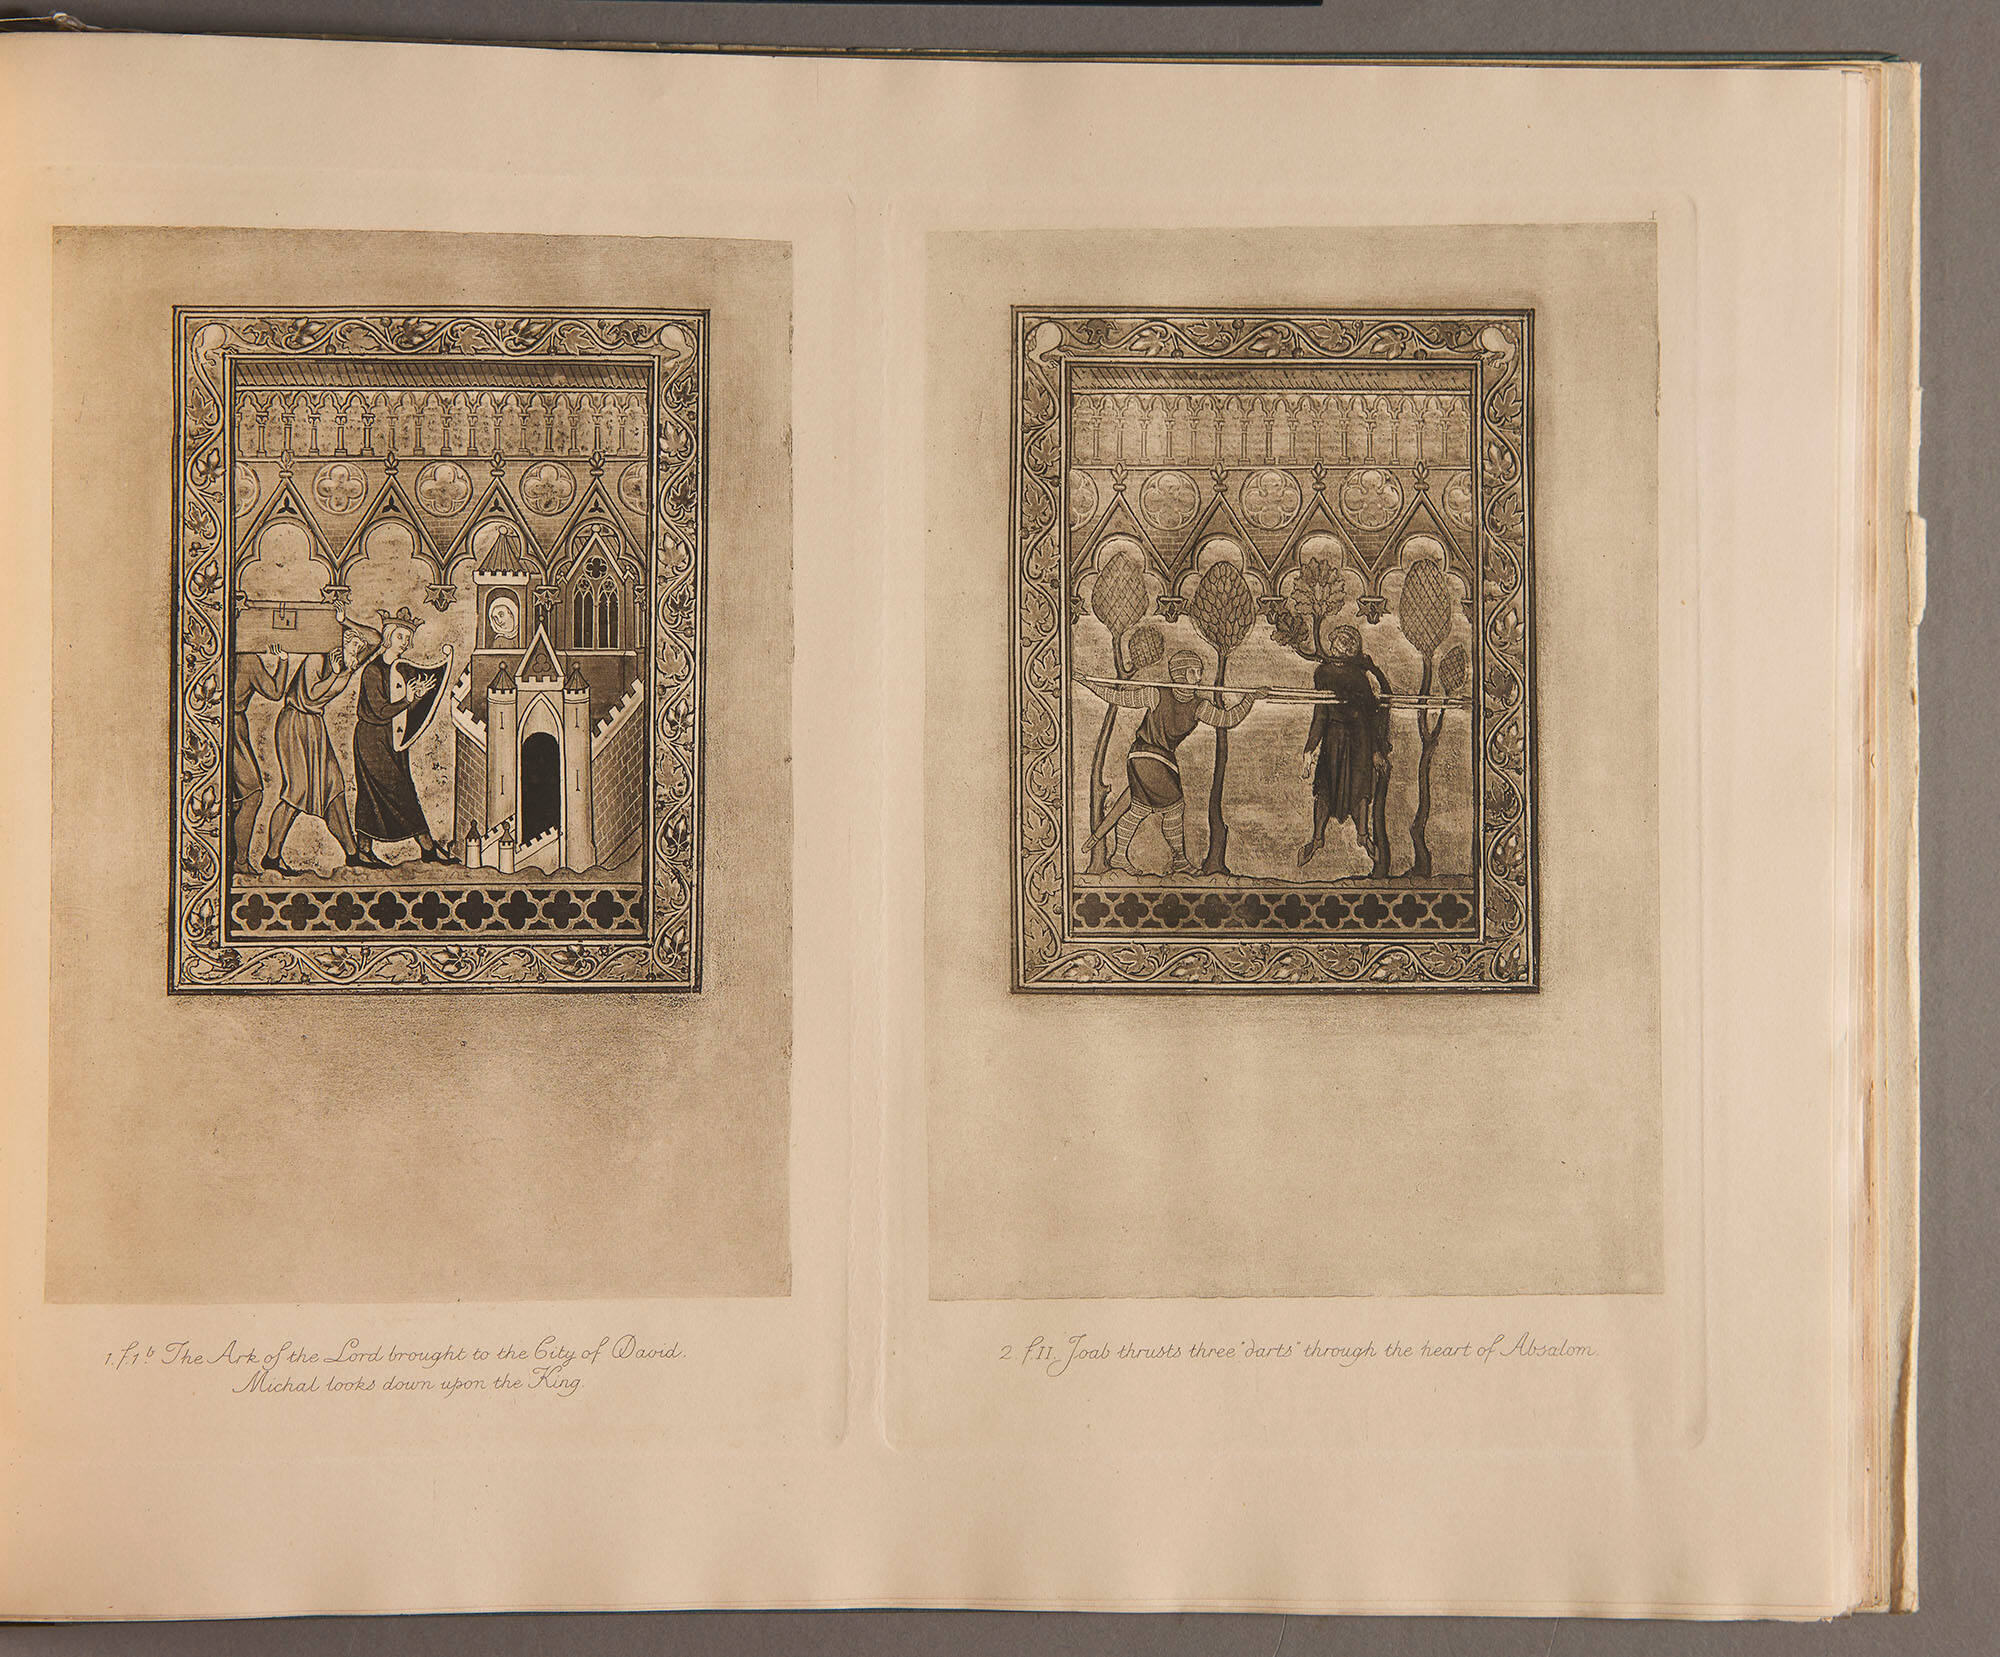 I
1. f.1.b The Ark of the Lord brought to the City of David.
Michal looks down upon the King.
2. f.II. Joab thrusts three "darts" through the heart of Absalom.